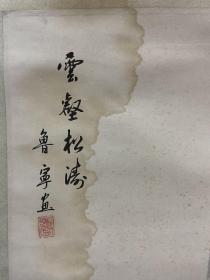 雲壑松濤
魯寧画